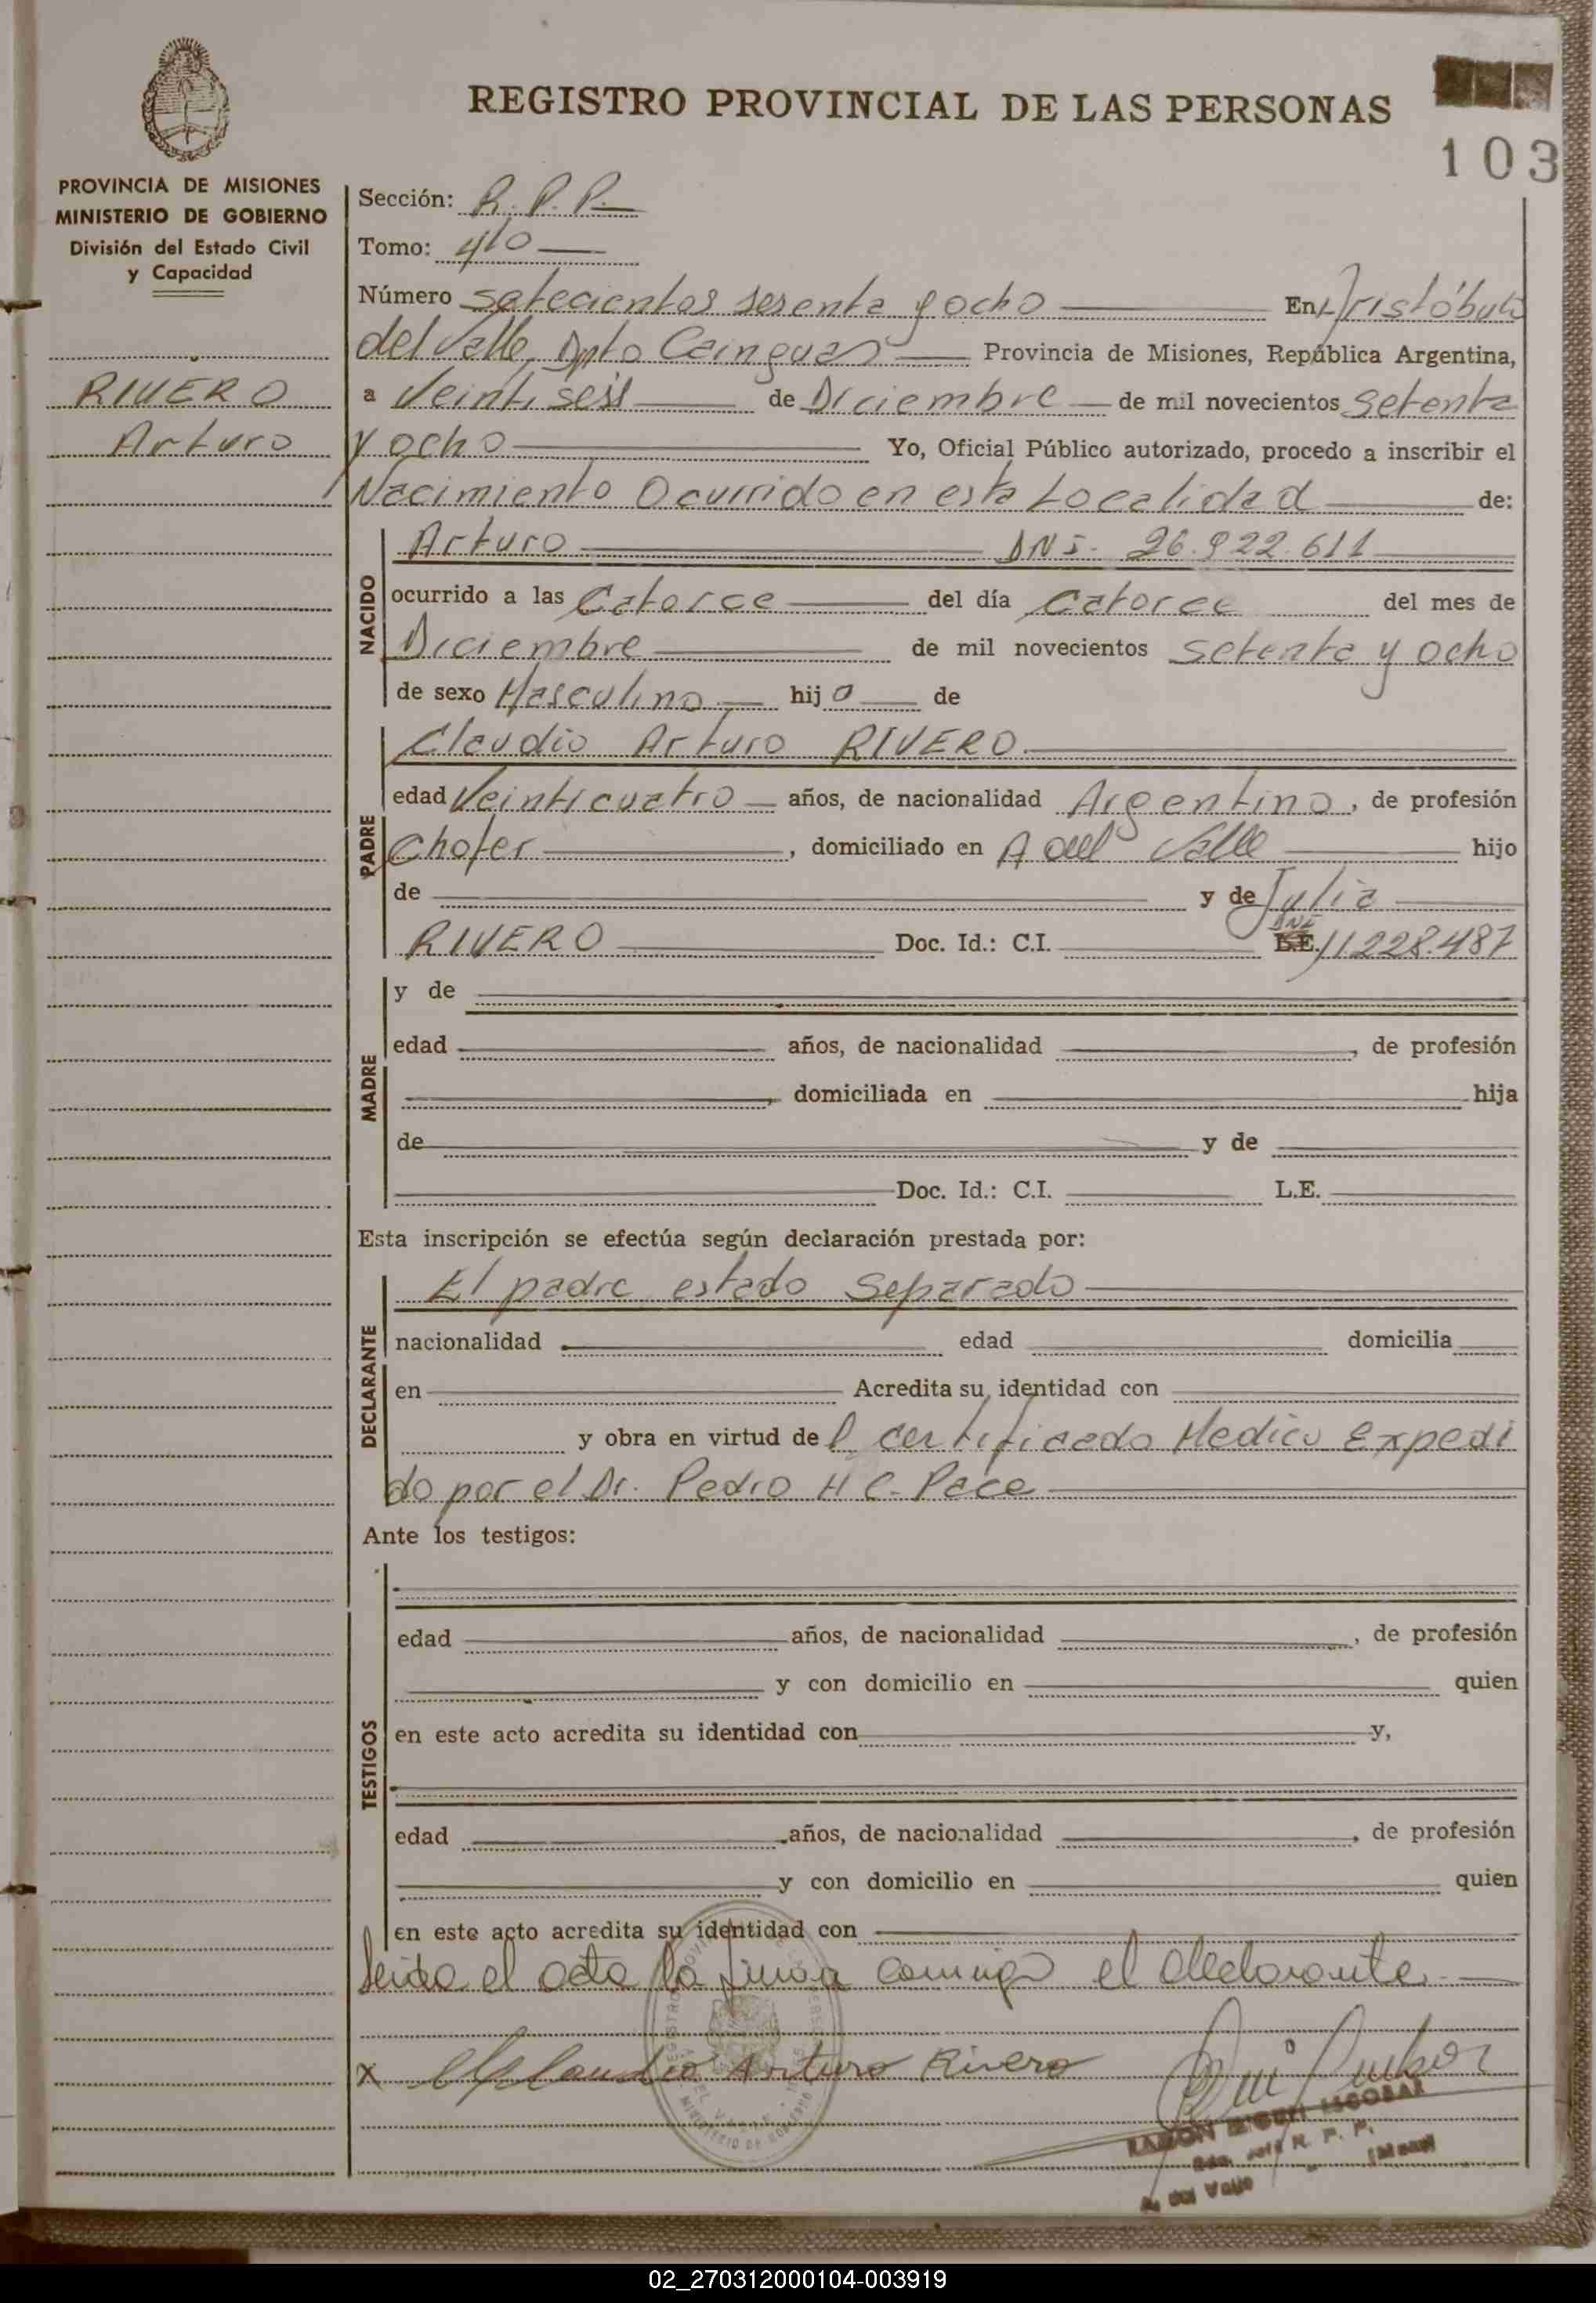 REGISTRO PROVINCIAL DE LAS PERSONAS
103
PROVINCIA DE MISIONES
MINISTERIO DE GOBIERNO
División del Estado Civil
y Capacidad
RIVERO
Arturo
Sección: R.P.P.
Tomo: 4/0
Número setecientos sesenta y ocho En Aristóbulo
del Valle, Dpto Cainguas Provincia de Misiones, República Argentina,
a Veintiseis de Diciembre de mil novecientos setenta
y ocho Yo, Oficial Público autorizado, procedo a inscribir el
Nacimiento Ocurrido en esta Localidad de:
NACIDO
Arturo DNI. 26.922.611
ocurrido a las Catorce del día Catorce del mes de
Diciembre de mil novecientos setenta y ocho
de sexo Masculino hijo de
PADRE
Claudio Arturo RIVERO
edad Veinticuatro años, de nacionalidad Argentino, de profesión
Chofer, domiciliado en A del Valle hijo
de y de Julia
RIVERO Doc. Id.: C.I. L.E. DNI 11.228.487
MADRE
y de
edad años, de nacionalidad , de profesión
, domiciliada en hija
de y de
Doc. Id.: C.I. L.E.
Esta inscripción se efectúa según declaración prestada por:
DECLARANTE
El padre estado Separado
nacionalidad edad domicilia
en Acredita su identidad con
y obra en virtud del certificado Medico Expedi
do por el Dr. Pedro H C. Pace
Ante los testigos:
TESTIGOS
edad años, de nacionalidad , de profesión
y con domicilio en quien
en este acto acredita su identidad con y,
edad años, de nacionalidad , de profesión
y con domicilio en quien
en este acto acredita su identidad con
Leida el acta la firma conmigo el declarante
x Claudio Arturo Rivero
RAMON MIGUEL ESCOBAR
Jefe R. P. P.
A. del Valle
02_270312000104-003919